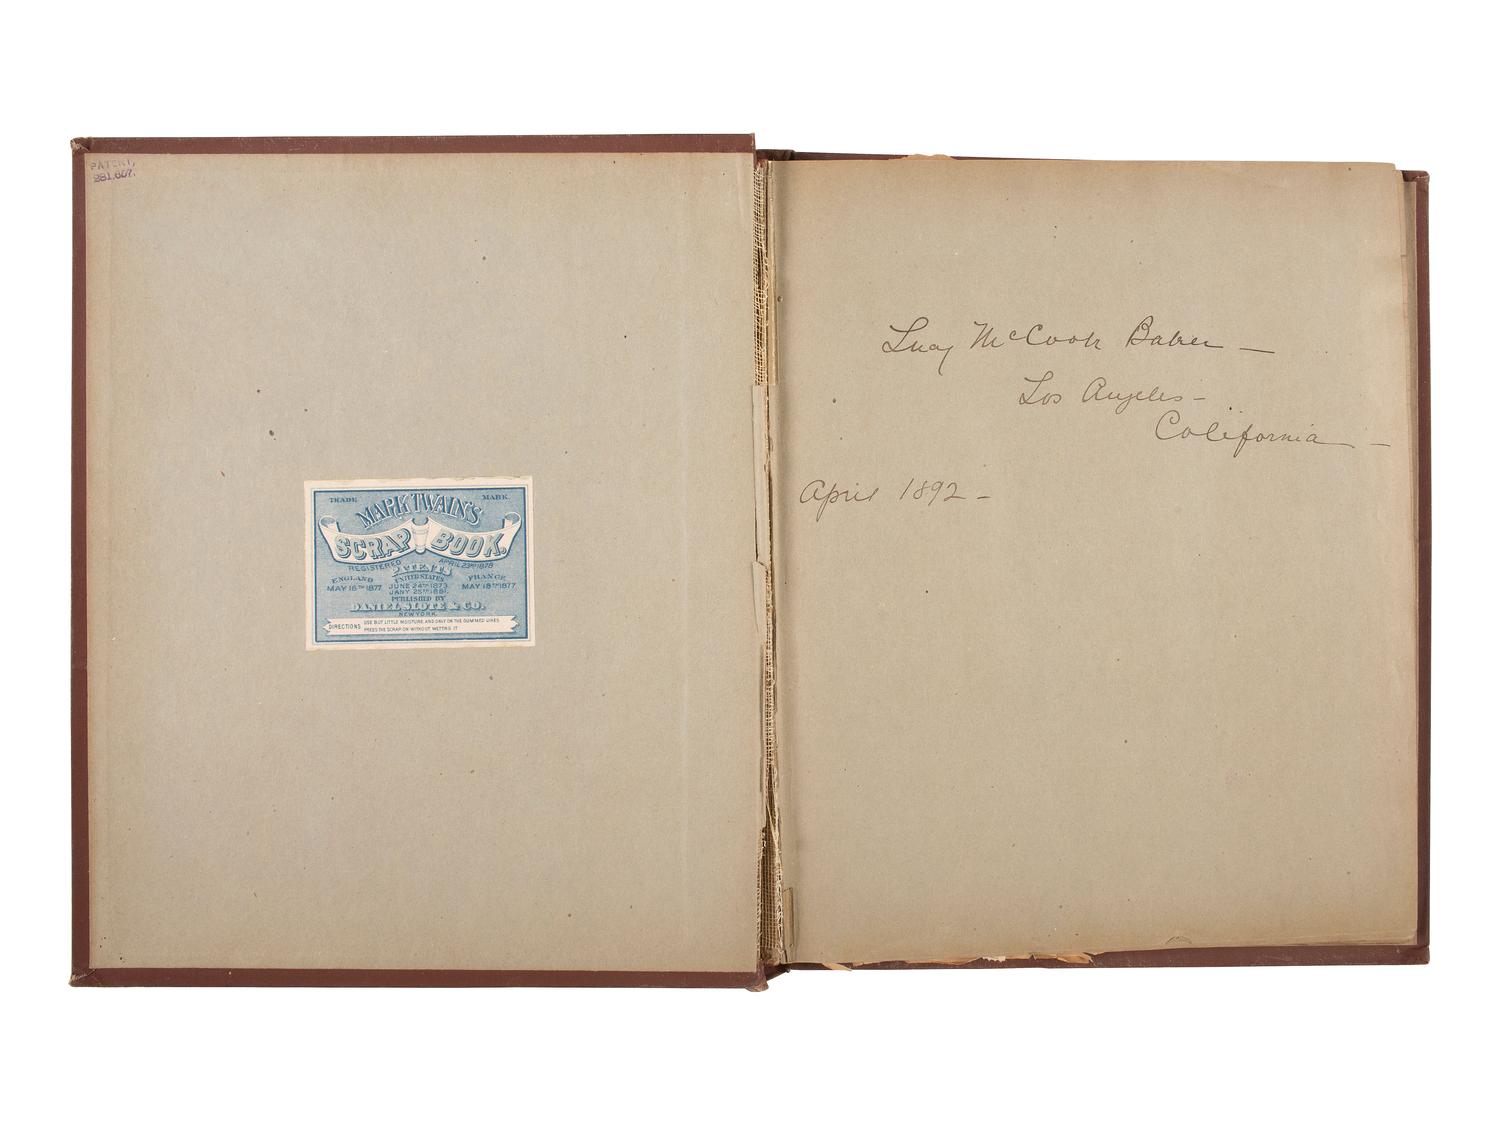 PATENT,
281.657.
TRADE MARK
MARK TWAIN'S
SCRAP BOOK.
REGISTERED APRIL 23RD 1878
PATENTS
ENGLAND UNITED STATES FRANCE
MAY 16TH 1877 JUNE 24TH 1873 MAY 18TH 1877
JANY 25TH 1881.
PUBLISHED BY
DANIEL SLOTE & CO.
NEW YORK
DIRECTIONS USE BUT LITTLE MOISTURE AND ONLY ON THE GUMMED LINES
PRESS THE SCRAP ON WITHOUT WETTING IT
Lucy McCook Baker —
Los Angeles —
California —
April 1892 —